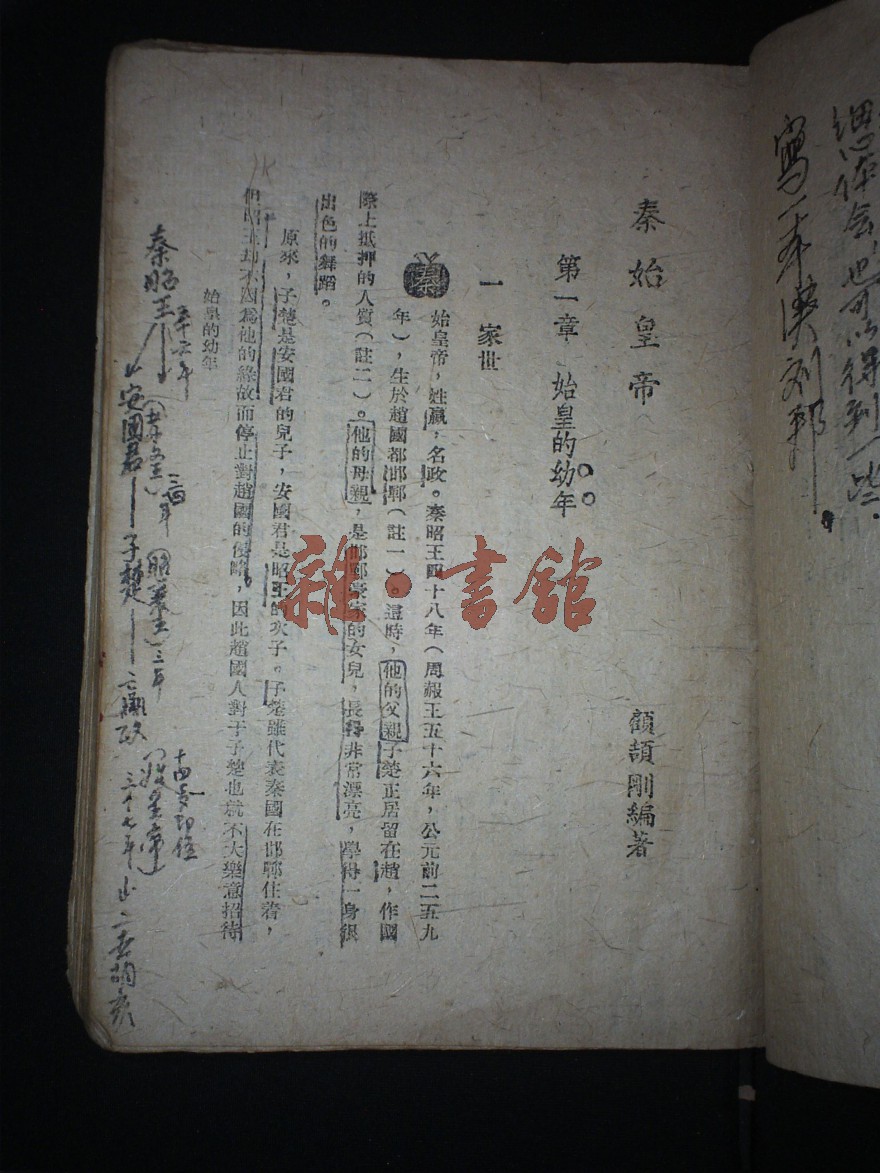 細心体会，也可以得到一些.
寫一本漢刘邦.
秦始皇帝
顧頡剛編著
第一章 始皇的幼年
一 家世
秦始皇帝，姓嬴，名政。秦昭王四十八年（周赧王五十六年，公元前二五九
年），生於趙國都邯鄲（註一）。這時，他的父親子楚正居留在趙，作國
際上抵押的人質（註二）。他的母親，是邯鄲豪家的女兒，長得非常漂亮，學得一身很
出色的舞蹈。
原來，子楚是安國君的兒子，安國君是昭王的次子。子楚雖代表秦國在邯鄲住着，
但昭王却不因爲他的緣故而停止對趙國的侵略，因此趙國人對于子楚也就不大樂意招待
始皇的幼年
秦昭王
五十六年
安國君
子楚
三年
嬴政
十四
即位
（始皇帝）
三十七年
二世胡亥
雜·書館